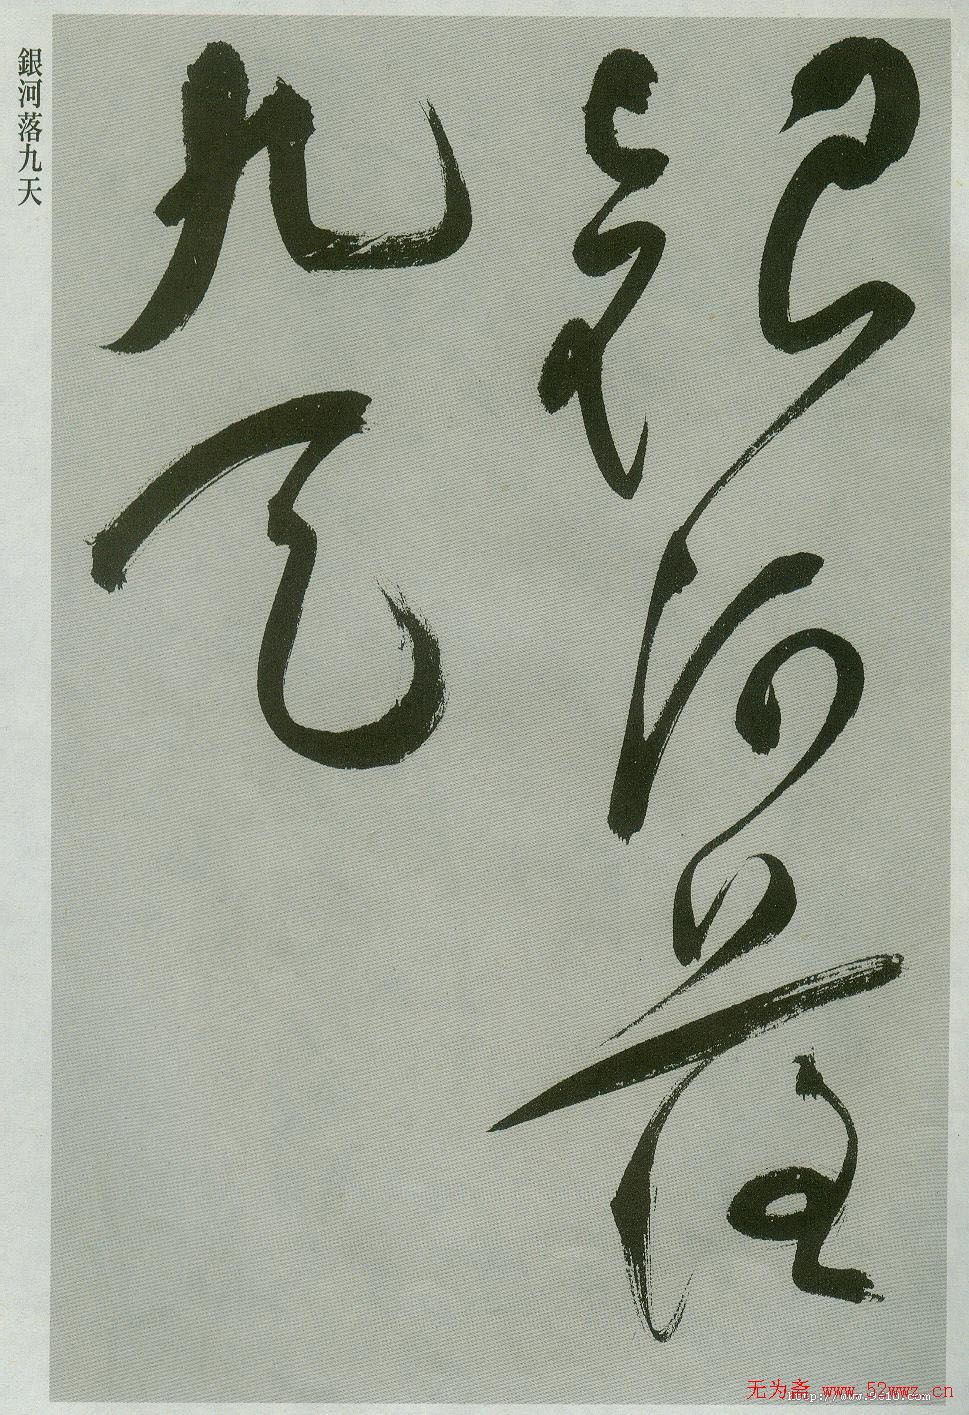 銀河落
九天
銀河落九天
无为斋 www.52wwz.cn